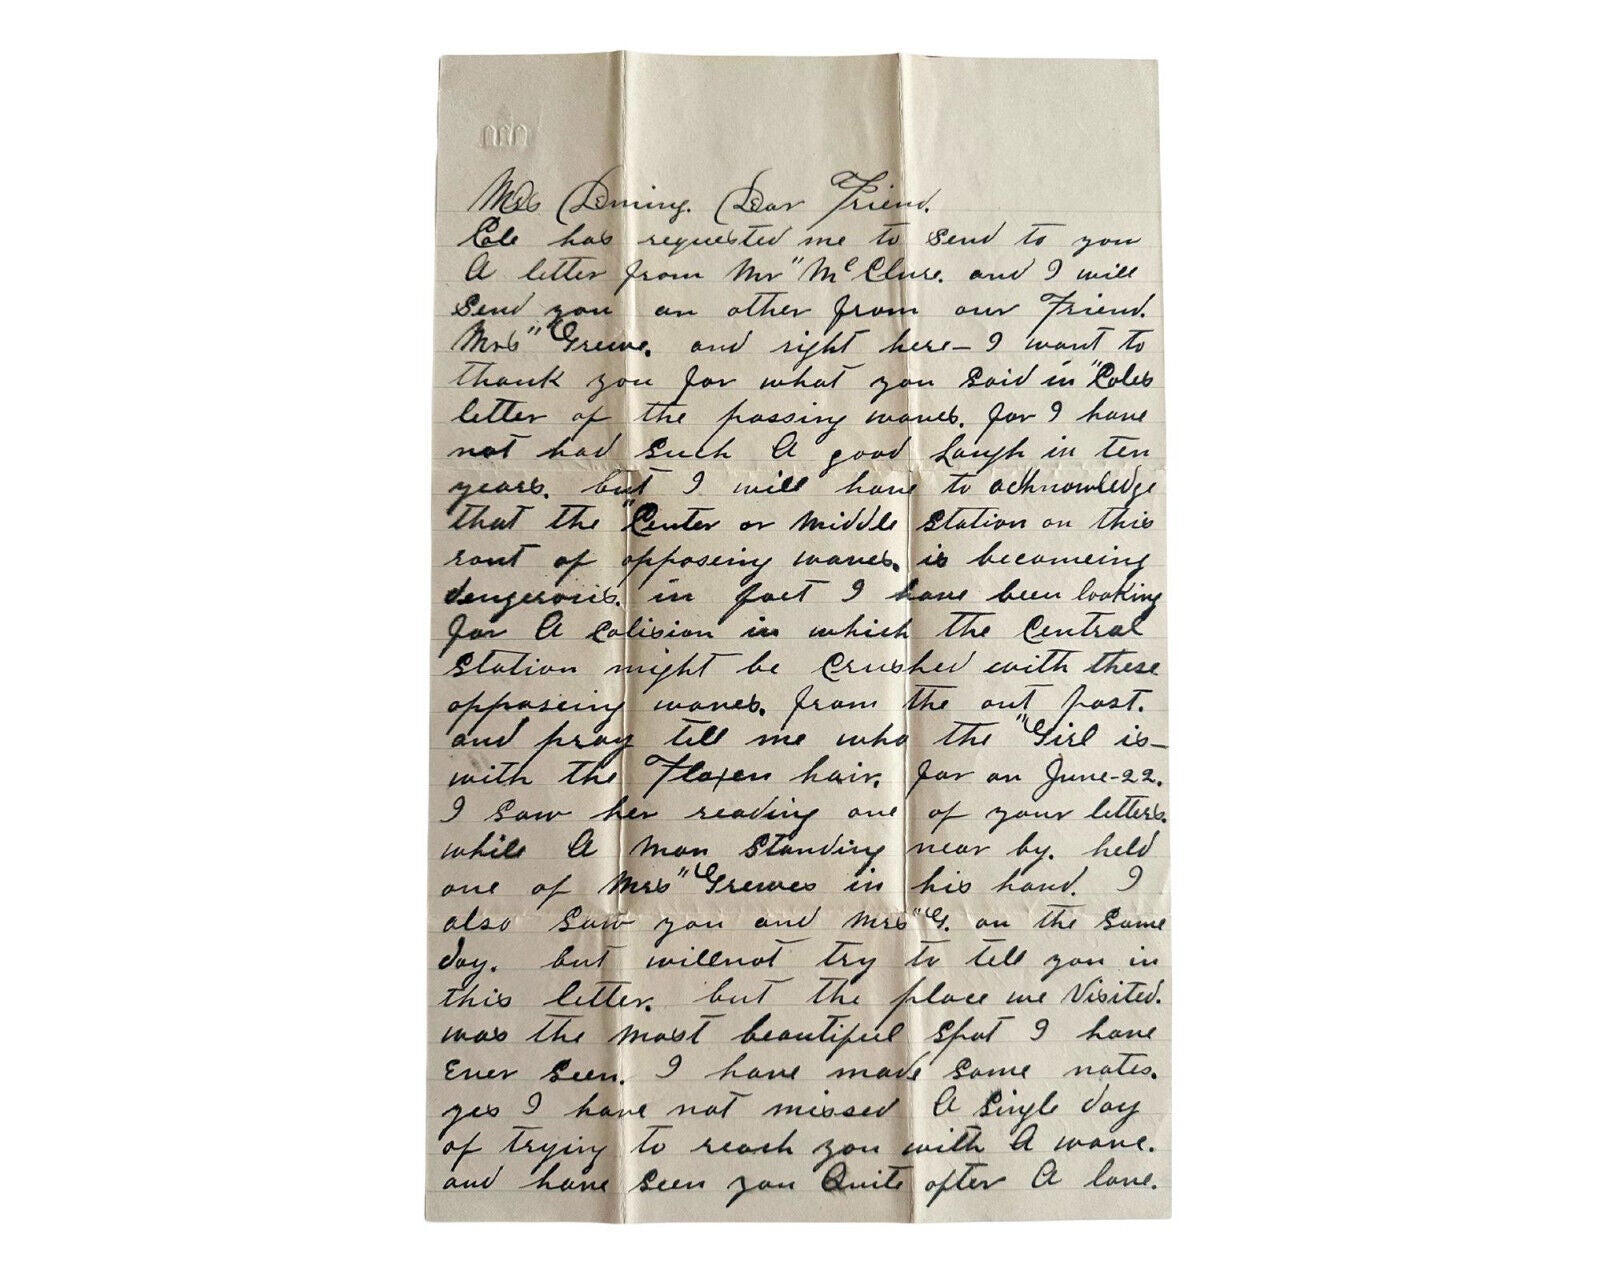 Mrs Deming. Dear Friend.
Cole has requested me to send to you
A letter from Mr" McClure. and I will
send you an other from our Friend.
Mrs" Grewe. and right here - I want to
thank you for what you said in "Coles
letter of the passing waves. for I have
not had such A good Laugh in ten
years. but I will have to acknowledge
that the "Center or Middle Station on this
rout of opposing waves. is becomeing
dengerous. in fact I have been looking
for A Colision in which the Central
Station might be Crushed with these
opposeing waves. from the out post.
and pray tell me who the "Girl is -
with the Flaxen hair. for on June-22.
I saw her reading one of your letters.
while A man standing near by. held
one of Mrs" Grewes in his hand. I
also saw you and Mrs" G. on the same
day. but willnot try to tell you in
this letter. but the place we Visited.
was the most beautiful spot I have
Ever seen. I have made some notes.
yes I have not missed A single day
of trying to reach you with A wave.
and have seen you Quite ofter A lone.